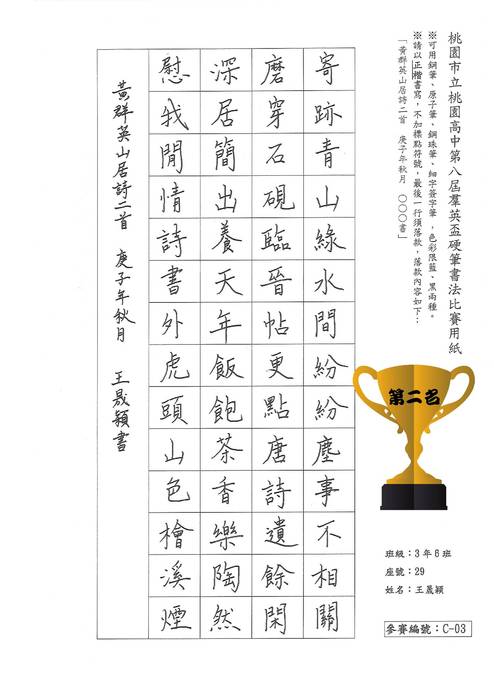 桃園市立桃園高中第八屆羣英盃硬筆書法比賽用紙
※可用鋼筆、原子筆、鋼珠筆、細字簽字筆，色彩限藍、黑兩種。
※請以正楷書寫，不加標點符號，最後一行須落款，落款內容如下：
「黃群英山居詩二首　庚子年秋月　○○○書」
寄跡青山綠水間紛紛塵事不相關
磨穿石硯臨晉帖更點唐詩遺餘閑
深居簡出養天年飯飽茶香樂陶然
慰我閒情詩書外虎頭山色檜溪煙
黃群英山居詩二首　庚子年秋月　王晟穎書
第二名
班級：3年6班
座號：29
姓名：王晟穎
參賽編號：C-03